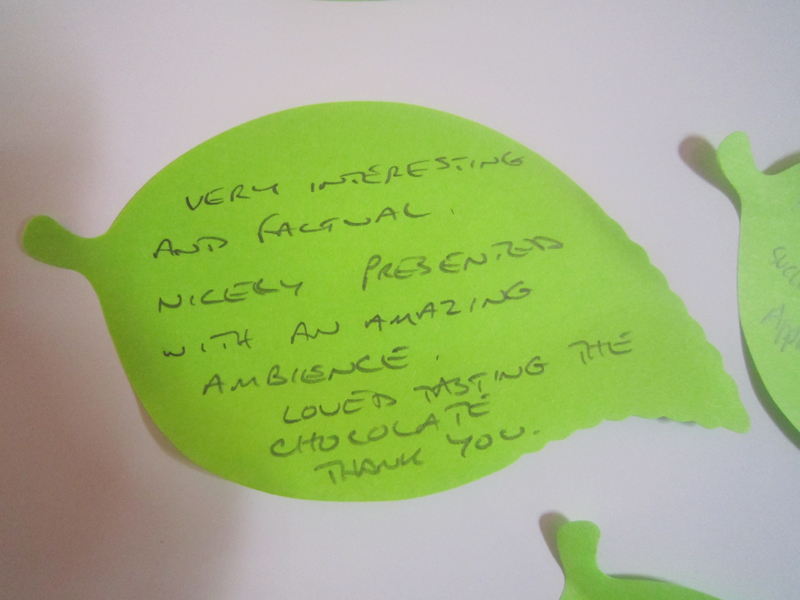 VERY INTERESTING
AND FACTUAL.
NICELY PRESENTED
WITH AN AMAZING
AMBIENCE.
LOVED TASTING THE
CHOCOLATE
THANK YOU.